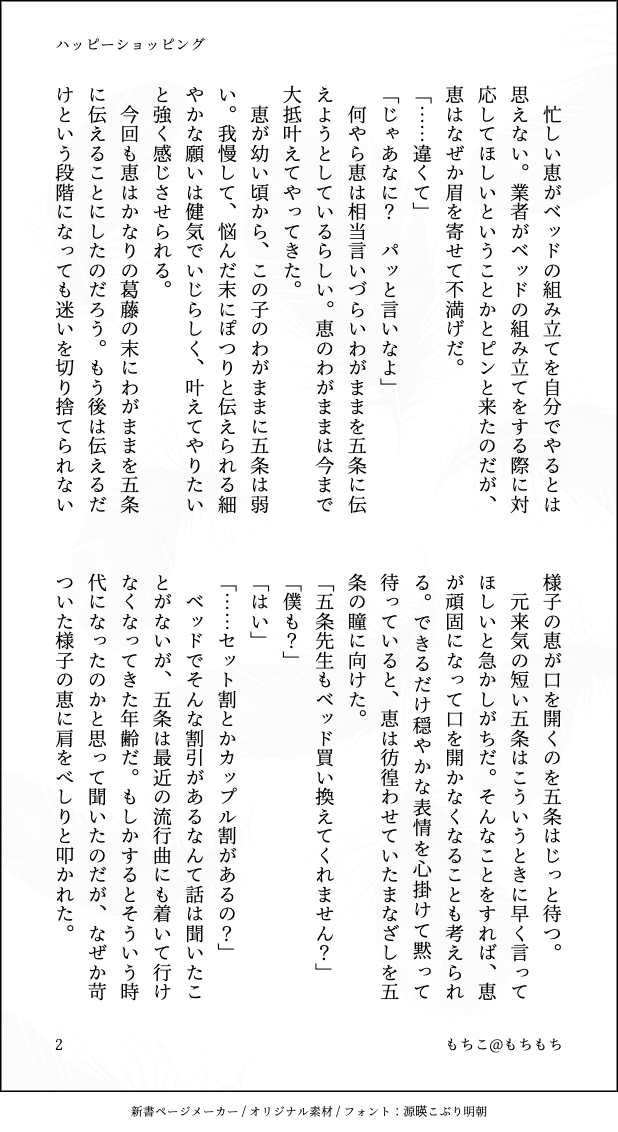 ハッピーショッピング
　忙しい恵がベッドの組み立てを自分でやるとは
思えない。業者がベッドの組み立てをする際に対
応してほしいということかとピンと来たのだが、
恵はなぜか眉を寄せて不満げだ。
「……違くて」
「じゃあなに？　パッと言いなよ」
　何やら恵は相当言いづらいわがままを五条に伝
えようとしているらしい。恵のわがままは今まで
大抵叶えてやってきた。
　恵が幼い頃から、この子のわがままに五条は弱
い。我慢して、悩んだ末にぽつりと伝えられる細
やかな願いは健気でいじらしく、叶えてやりたい
と強く感じさせられる。
　今回も恵はかなりの葛藤の末にわがままを五条
に伝えることにしたのだろう。もう後は伝えるだ
けという段階になっても迷いを切り捨てられない
様子の恵が口を開くのを五条はじっと待つ。
　元来気の短い五条はこういうときに早く言って
ほしいと急かしがちだ。そんなことをすれば、恵
が頑固になって口を開かなくなることも考えられ
る。できるだけ穏やかな表情を心掛けて黙って
待っていると、恵は彷徨わせていたまなざしを五
条の瞳に向けた。
「五条先生もベッド買い換えてくれません？」
「僕も？」
「はい」
「……セット割とかカップル割があるの？」
　ベッドでそんな割引があるなんて話は聞いたこ
とがないが、五条は最近の流行曲にも着いて行け
なくなってきた年齢だ。もしかするとそういう時
代になったのかと思って聞いたのだが、なぜか苛
ついた様子の恵に肩をべしりと叩かれた。
2
もちこ@もちもち
新書ページメーカー / オリジナル素材 / フォント：源暎こぶり明朝